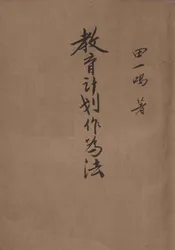 教育计划作为法
田一鳴 著